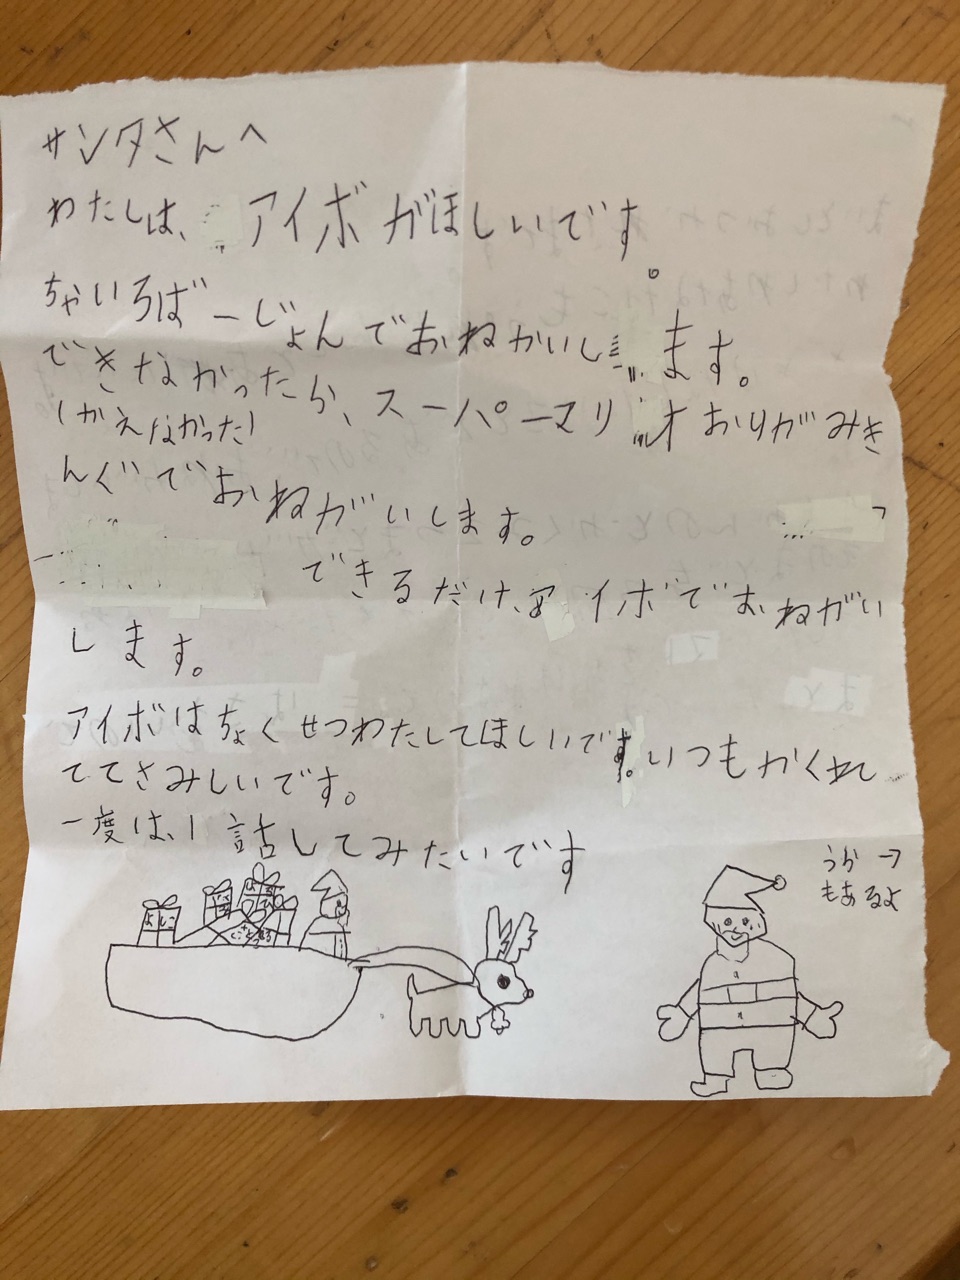 サンタさんへ
わたしは、アイボがほしいです。
ちゃいろばーじょんでおねがいします。
できなかったら、スーパーマリオおりがみき
(かえなかった)
んぐでおねがいします。
できるだけ、アイボでおねがい
します。
アイボはちょくせつわたしてほしいです。いつもかくれ
ててさみしいです。
一度は、話してみたいです
うら→
もあるよ